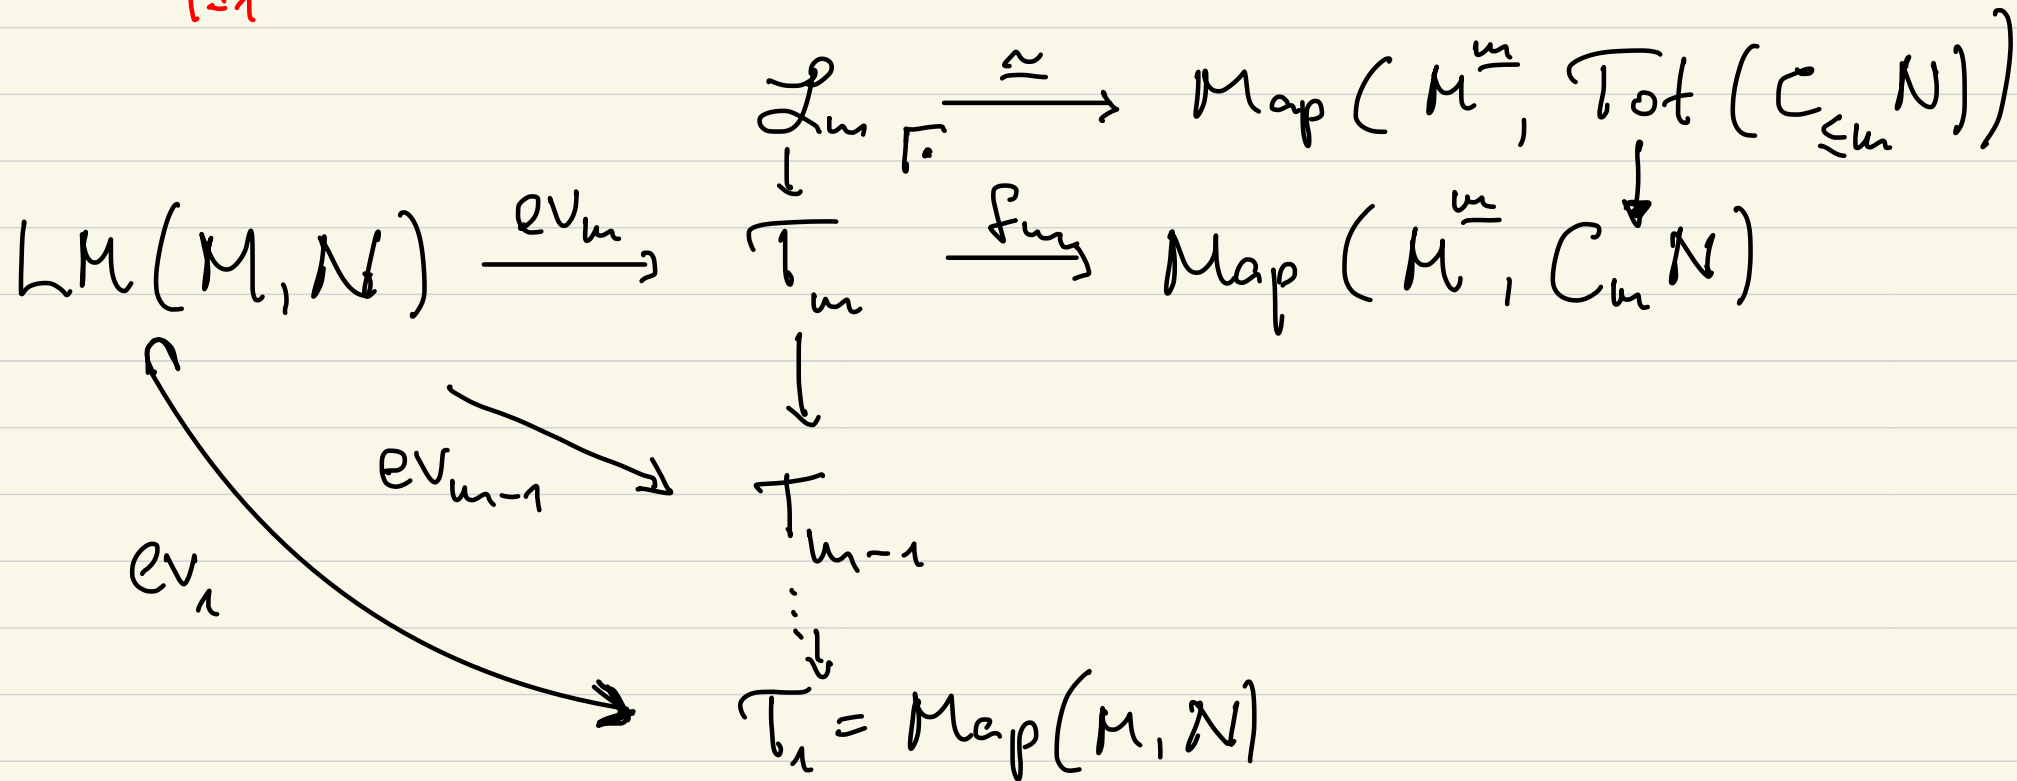 i=1
ℒₘ ≃ Map(M^m̲, Tot(C_{≤m} N))
LM(M,N) evₘ Tₘ fₘ Map(M^m̲, Cₘ N)
ev_{m-1} T_{m-1}
ev₁
T₁ = Map(M,N)